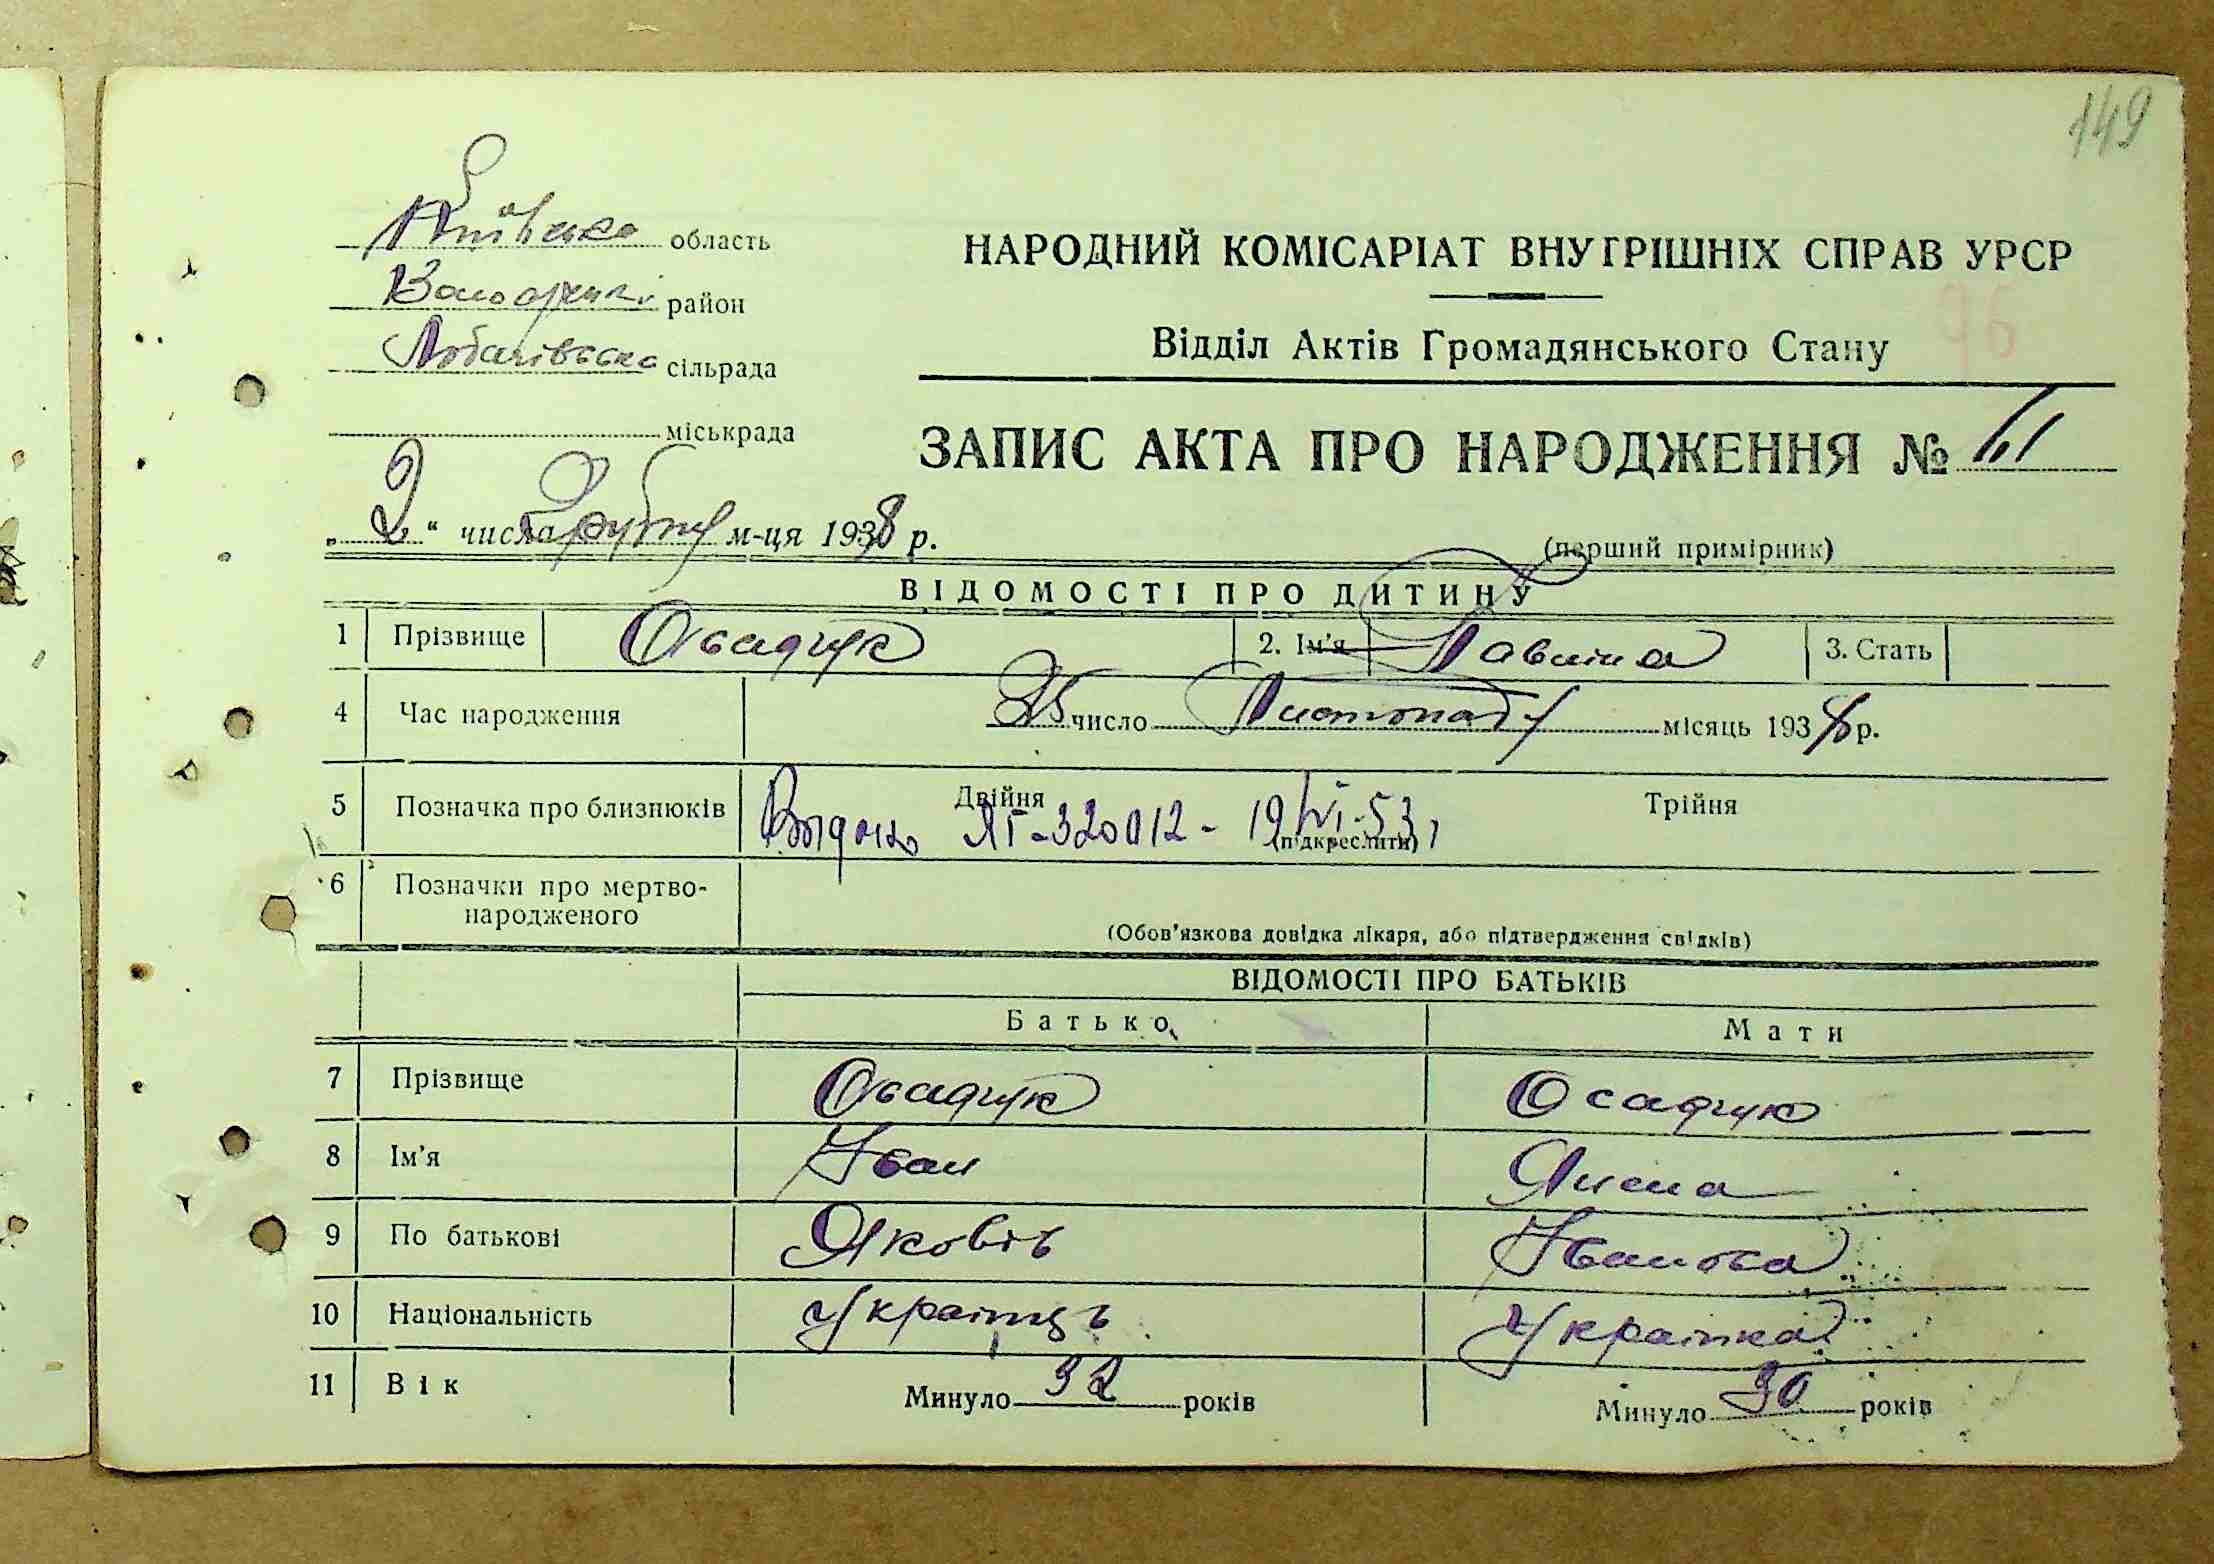 149
Київська область
Володарський район
Лобачівська сільрада
міськрада
НАРОДНИЙ КОМІСАРІАТ ВНУТРІШНІХ СПРАВ УРСР
96
Відділ Актів Громадянського Стану
ЗАПИС АКТА ПРО НАРОДЖЕННЯ №
„2“ числа Грудня м-ця 1938 р.
(перший примірник)
ВІДОМОСТІ ПРО ДИТИНУ
1 Прізвище Осадчук 2. Ім'я Павлина 3. Стать
4 Час народження 25 число Листопада місяць 1938 р.
5 Позначка про близнюків Двійня Трійня
(підкреслити)
ЯГ-320012 - 19/VI-53
6 Позначки про мертво-
народженого
(Обов'язкова довідка лікаря, або підтвердження свідків)
ВІДОМОСТІ ПРО БАТЬКІВ
Батько Мати
7 Прізвище Осадчук Осадчук
8 Ім'я Іван
9 По батькові Яковів Іванова
10 Національність Українць Українка
11 Вік Минуло 32 років Минуло 30 років